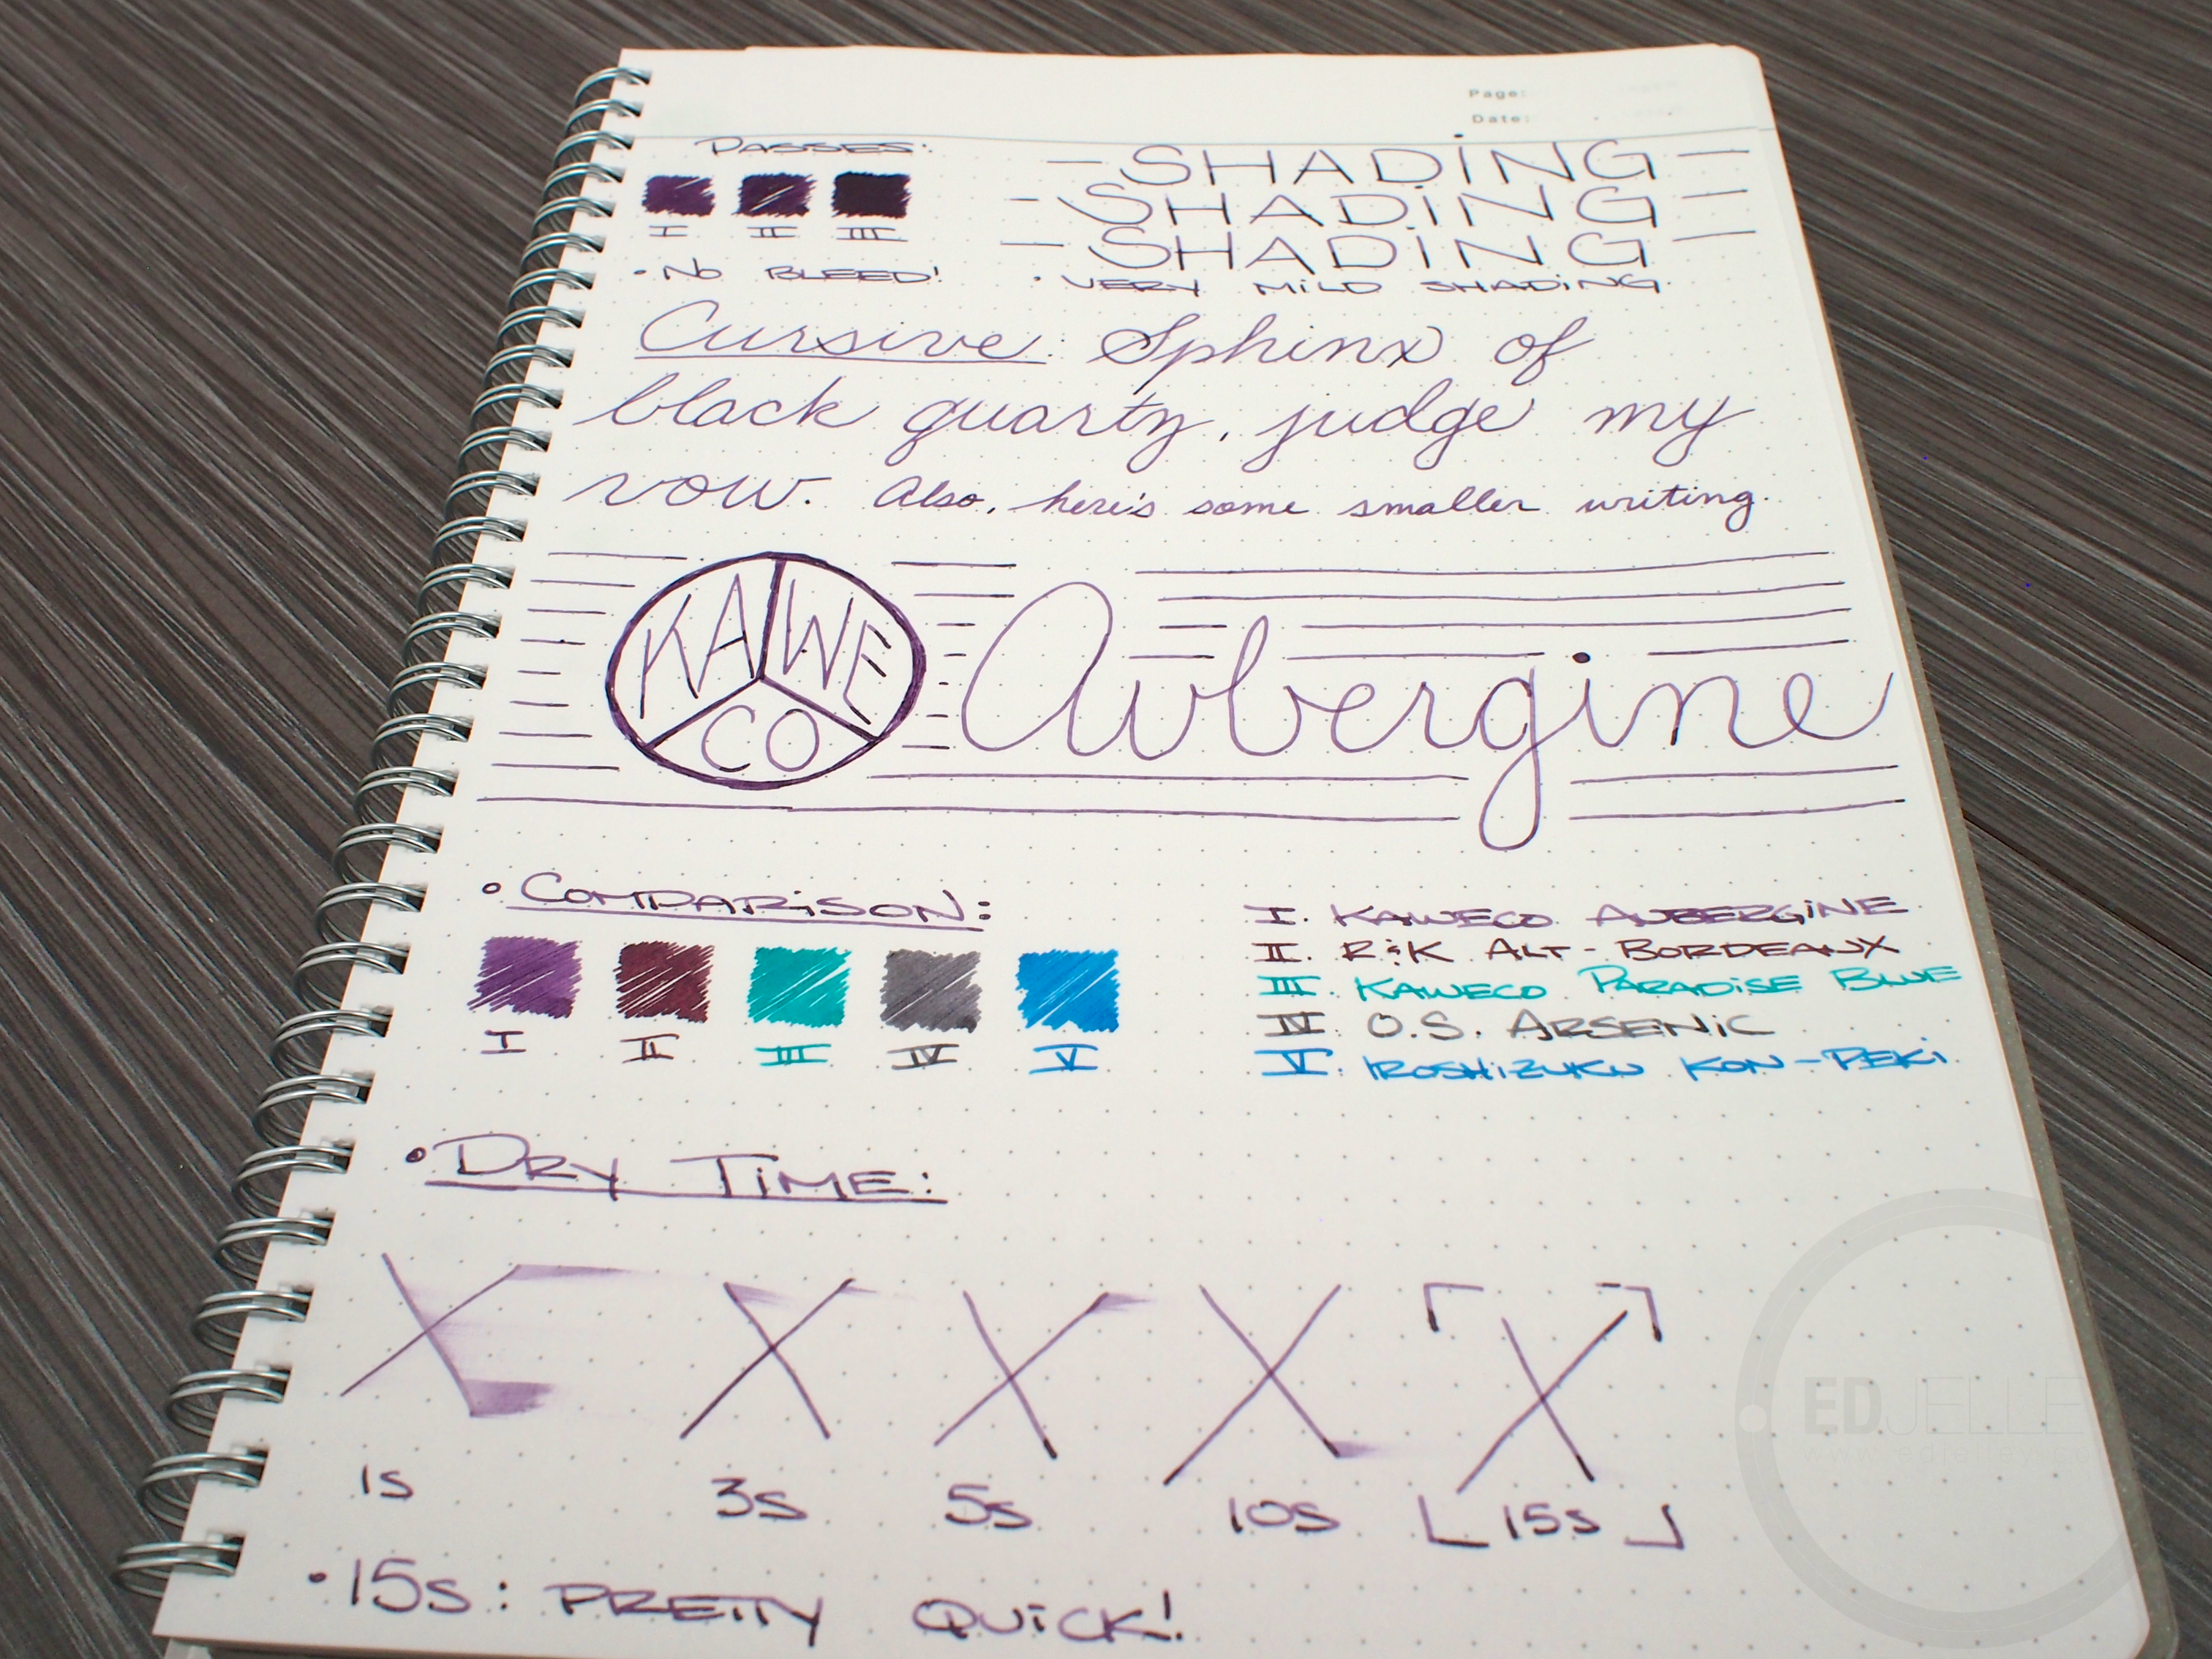 Page:
Date:
PASSES:
I II III
• NO BLEED!
— SHADiNG —
— SHADiNG —
— SHADiNG —
• VERY MiLD SHADiNG.
Cursive: Sphinx of
black quartz, judge my
vow. Also, here's some smaller writing.
KAWECO
Aubergine
• COMPARiSON:
I II III IV V
I. KAWECO AUBERGiNE
II. R&K ALT-BORDEAUX
III. KAWECO PARADiSE BLUE
IV. O.S. ARSENiC
V. IROSHiZUKU KON-PEKi
• DRY TiME:
1s 3s 5s 10s [15s]
• 15s: PRETTY QUiCK!
EDJELLE